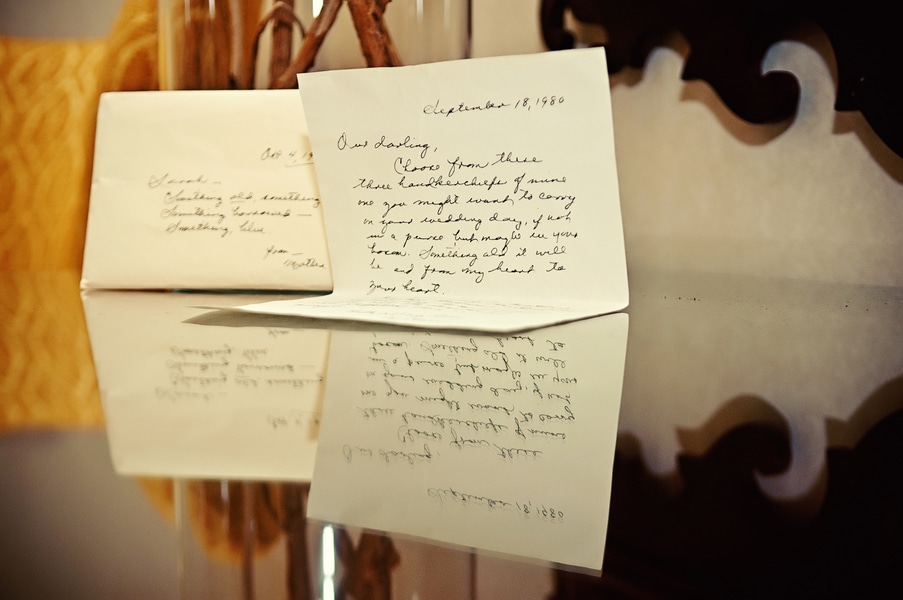 Oct 4, 19
Sarah —
Something old, something
Something borrowed —
Something, blue.
from —
Mother
September 18, 1980
Our darling,
Choose from these
three handkercheifs of mine
one you might want to carry
on your wedding day, if not
in a purse but maybe in your
bosom. Something old it will
be and from my heart to
your heart.